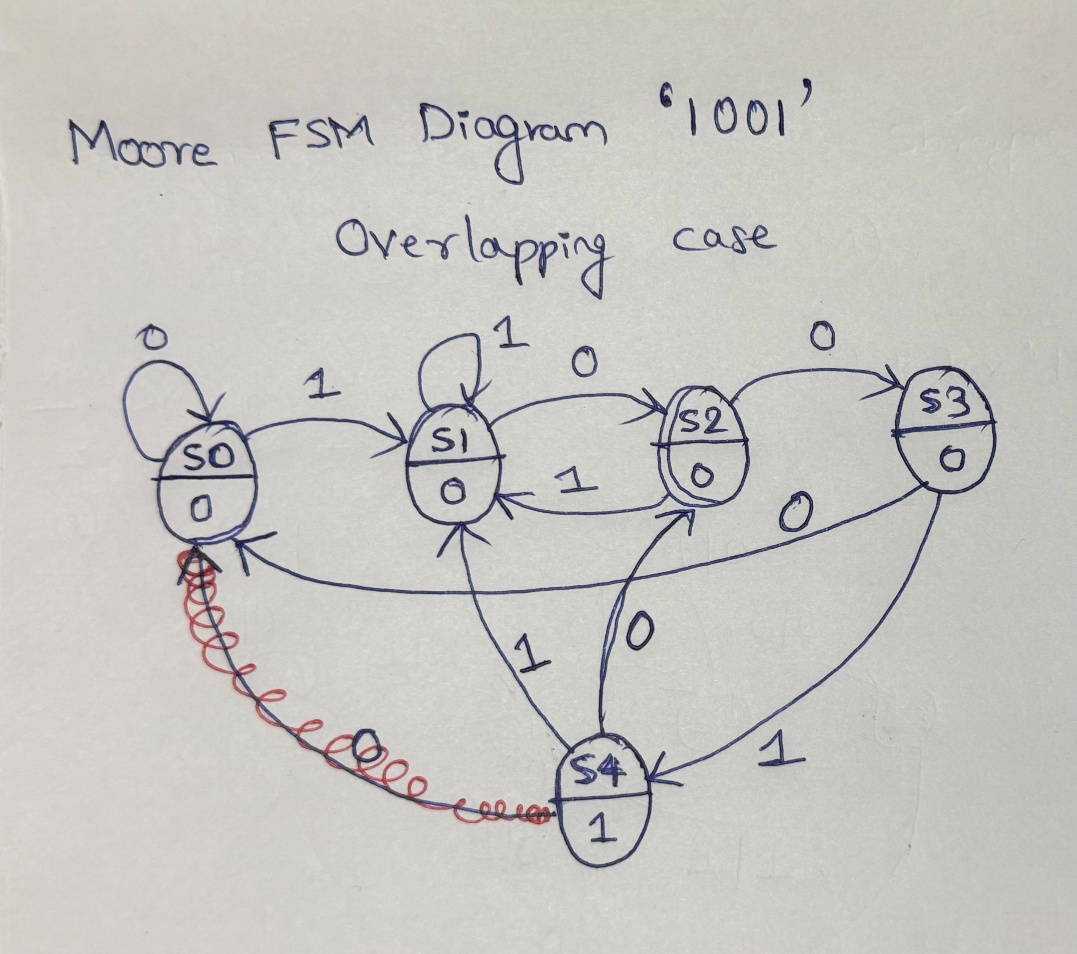 Moore FSM Diagram '1001'
Overlapping case
0 1 1 0 0
S0 S1 S2 S3
0 0 0 0
1 0
1 0
0 1
S4
1